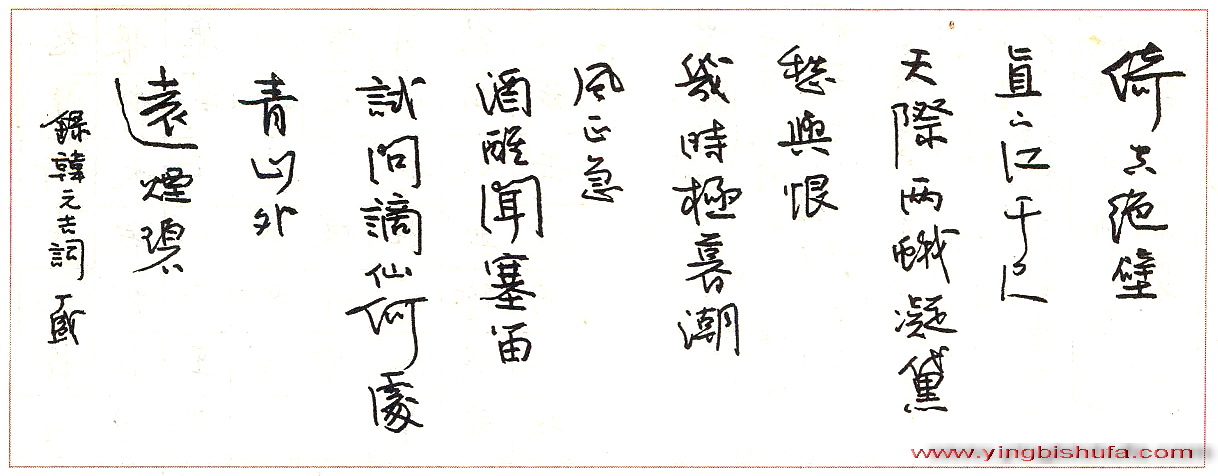 倚天絕壁
直下江千尺
天際兩蛾凝黛
愁與恨
幾時極暮潮
風正急
酒醒聞塞笛
試問謫仙何處
青山外
遠煙碧
錄韓元吉詞
www.yingbishufa.com